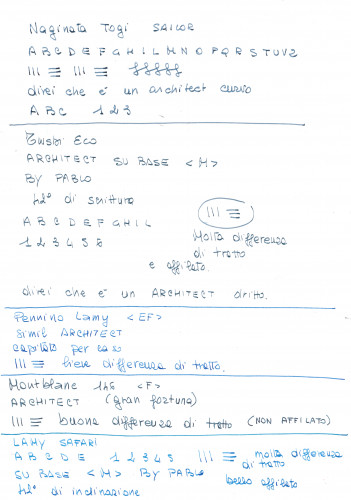 Naginata Togi SAILOR
A B C D E F G H I L M N O P Q R S T U V Z
direi che e' un architect curvo
A B C 1 2 3
Eco
ARCHITECT SU BASE <M>
BY PABLO
42° di scrittura
A B C D E F G H I L
1 2 3 4 5 6
Molta differenza
di tratto
e affilato.
direi che e' un ARCHITECT dritto.
Pennino Lamy <EF>
simil ARCHITECT
capitato per caso
lieve differenza di tratto.
Montblanc 146 <F>
ARCHITECT (gran fortuna)
buona differenza di tratto (NON AFFILATO)
LAMY SAFARI
A B C D E 1 2 3 4 5 molta differenza
di tratto
SU BASE <M> BY PABLO
bello affilato
42° di inclinazione